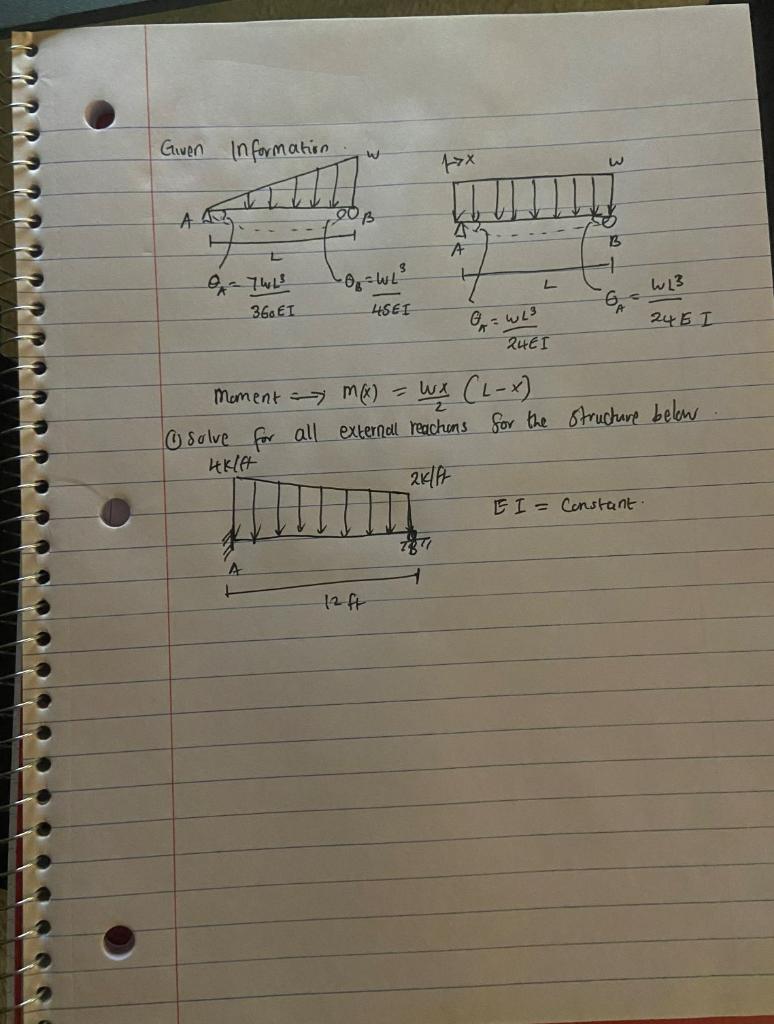 Given Information.
w
A
B
L
θA = 7wL³/360EI
θB = wL³/45EI
↦x
w
A
B
L
θA = wL³/24EI
θA = wL³/24EI
Moment ⟹ M(x) = wx/2 (L-x)
① Solve for all external reactions for the structure below.
4K/ft
2K/ft
EI = Constant.
A
B
12 ft